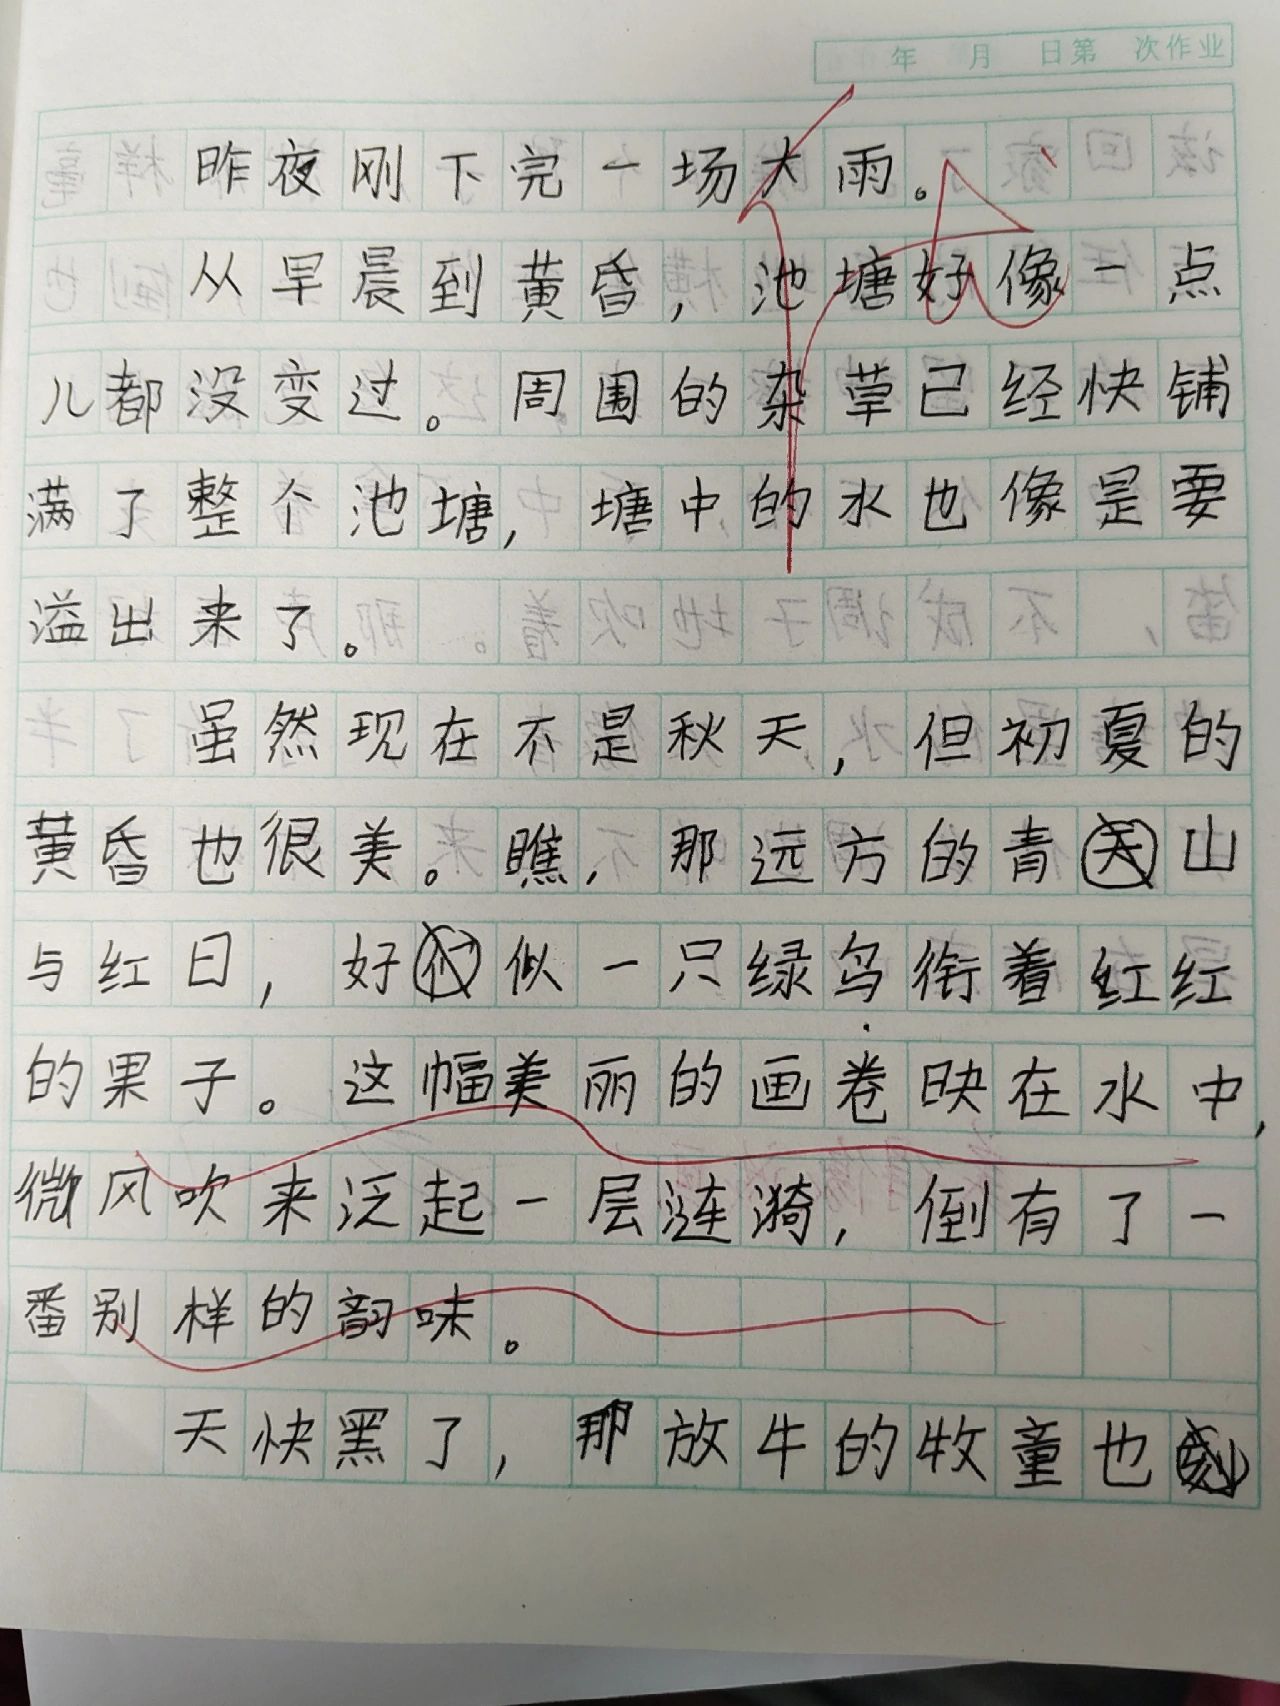 年 月 日第 次作业
昨夜刚下完一场大雨。
从早晨到黄昏，池塘好像一点
儿都没变过。周围的杂草已经快铺
满了整个池塘，塘中的水也像是要
溢出来了。
虽然现在不是秋天，但初夏的
黄昏也很美。瞧，那远方的青山
与红日，好似一只绿鸟衔着红红
的果子。这幅美丽的画卷映在水中，
微风吹来泛起一层涟漪，倒有了一
番别样的韵味。
天快黑了，那放牛的牧童也